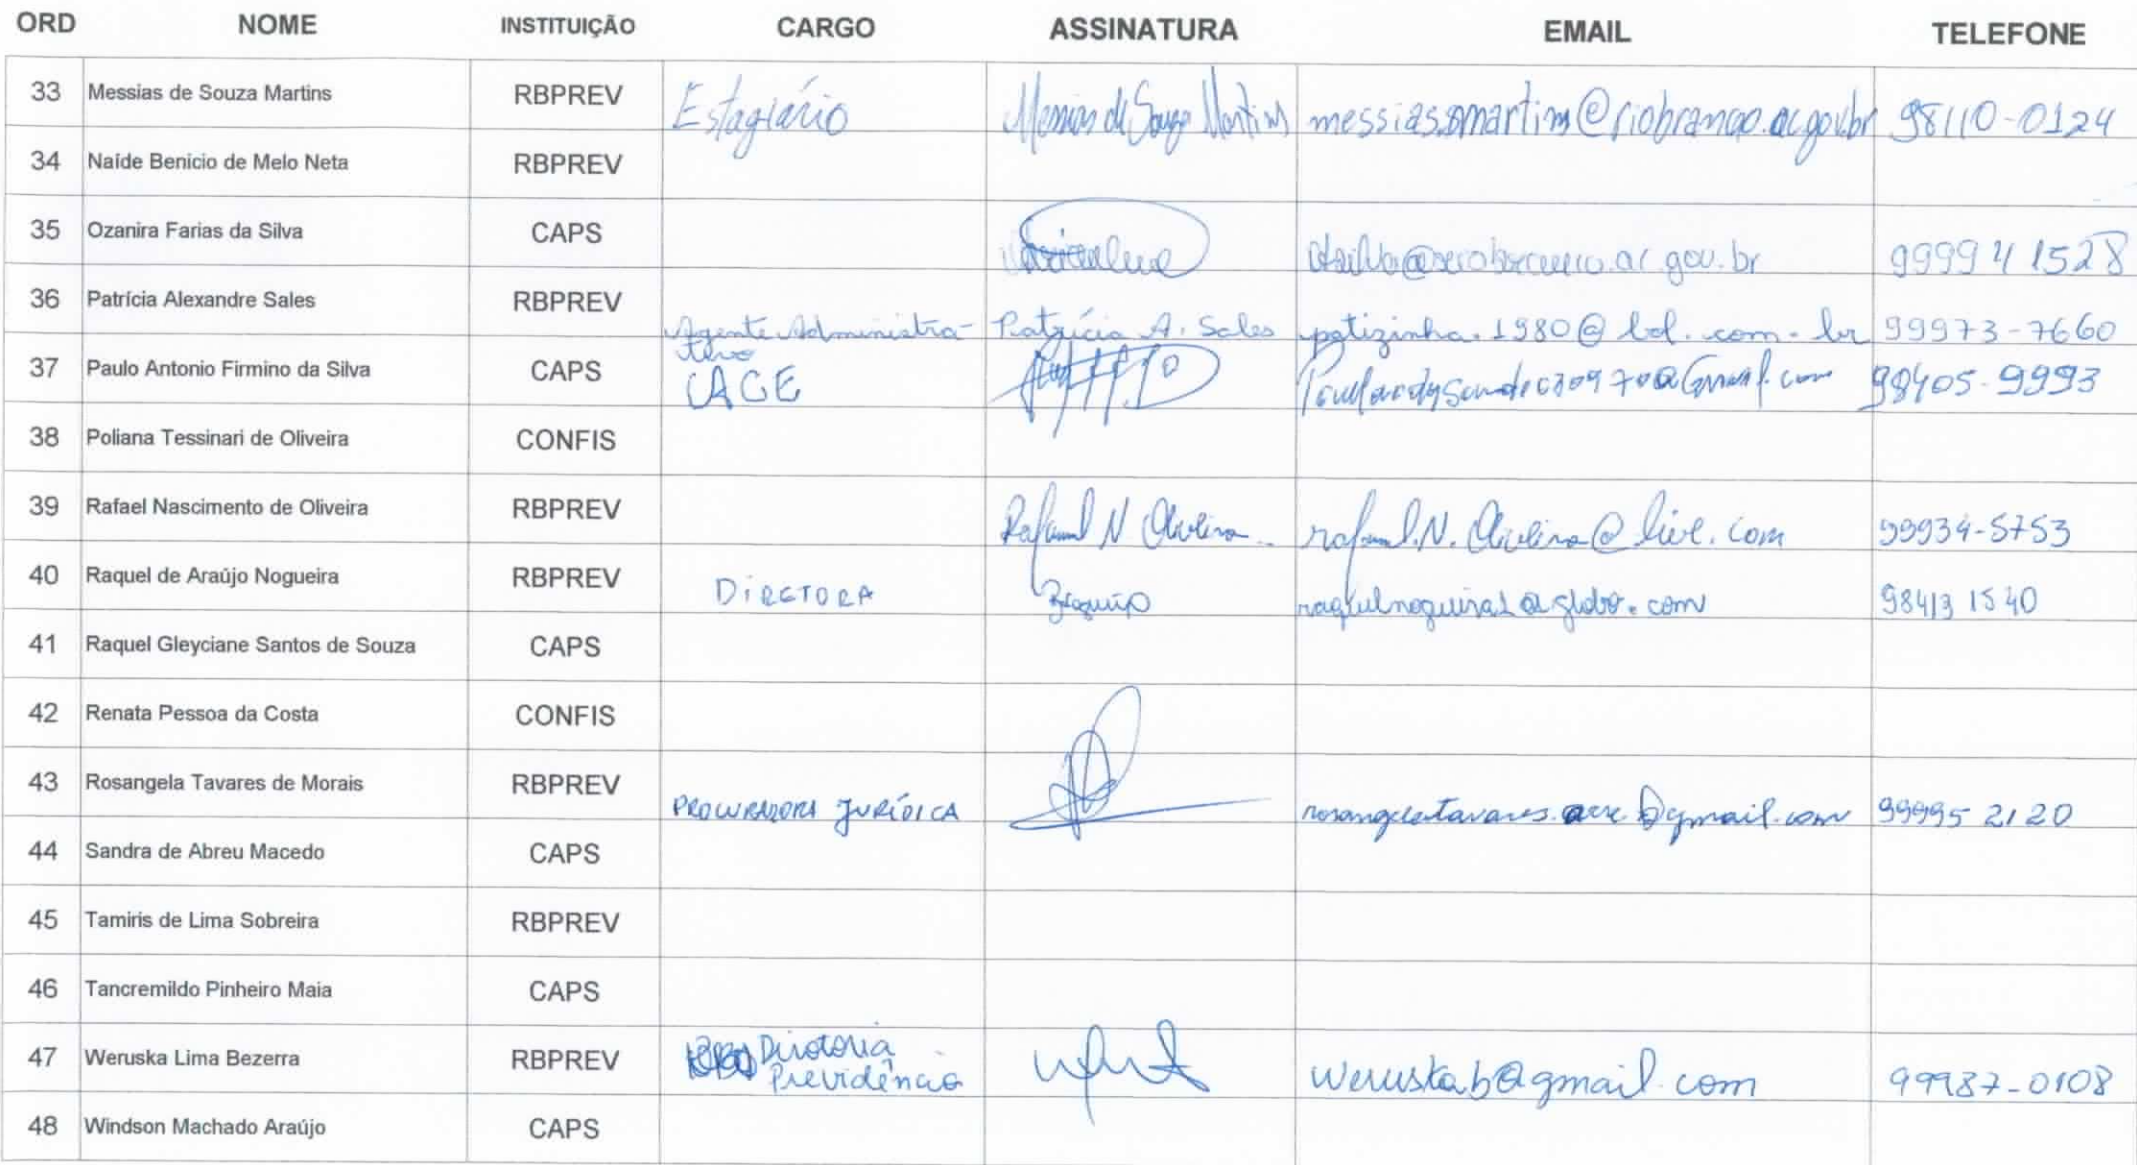 ORD NOME INSTITUIÇÃO CARGO ASSINATURA EMAIL TELEFONE
33 Messias de Souza Martins RBPREV Estagiário Messias de Souza Martins messias.smartins@riobranco.ac.gov.br 98110-0124
34 Naíde Benicio de Melo Neta RBPREV
35 Ozanira Farias da Silva CAPS 99994 1528
36 Patrícia Alexandre Sales RBPREV Agente Administra- Patrícia A. Sales patizinha.1980@bol.com.br 99973-7660
tivo
37 Paulo Antonio Firmino da Silva CAPS CAGE 98405-9993
38 Poliana Tessinari de Oliveira CONFIS
39 Rafael Nascimento de Oliveira RBPREV Rafael N Oliveira rafael.N.Oliveira@live.com 99934-5753
40 Raquel de Araújo Nogueira RBPREV DIRETORA raquelnogueira1@globo.com 98413 1540
41 Raquel Gleyciane Santos de Souza CAPS
42 Renata Pessoa da Costa CONFIS
43 Rosangela Tavares de Morais RBPREV PROCURADORA JURÍDICA 99995 2120
44 Sandra de Abreu Macedo CAPS
45 Tamiris de Lima Sobreira RBPREV
46 Tancremildo Pinheiro Maia CAPS
47 Weruska Lima Bezerra RBPREV Diretoria weruskab@gmail.com 99987-0108
Previdência
48 Windson Machado Araújo CAPS